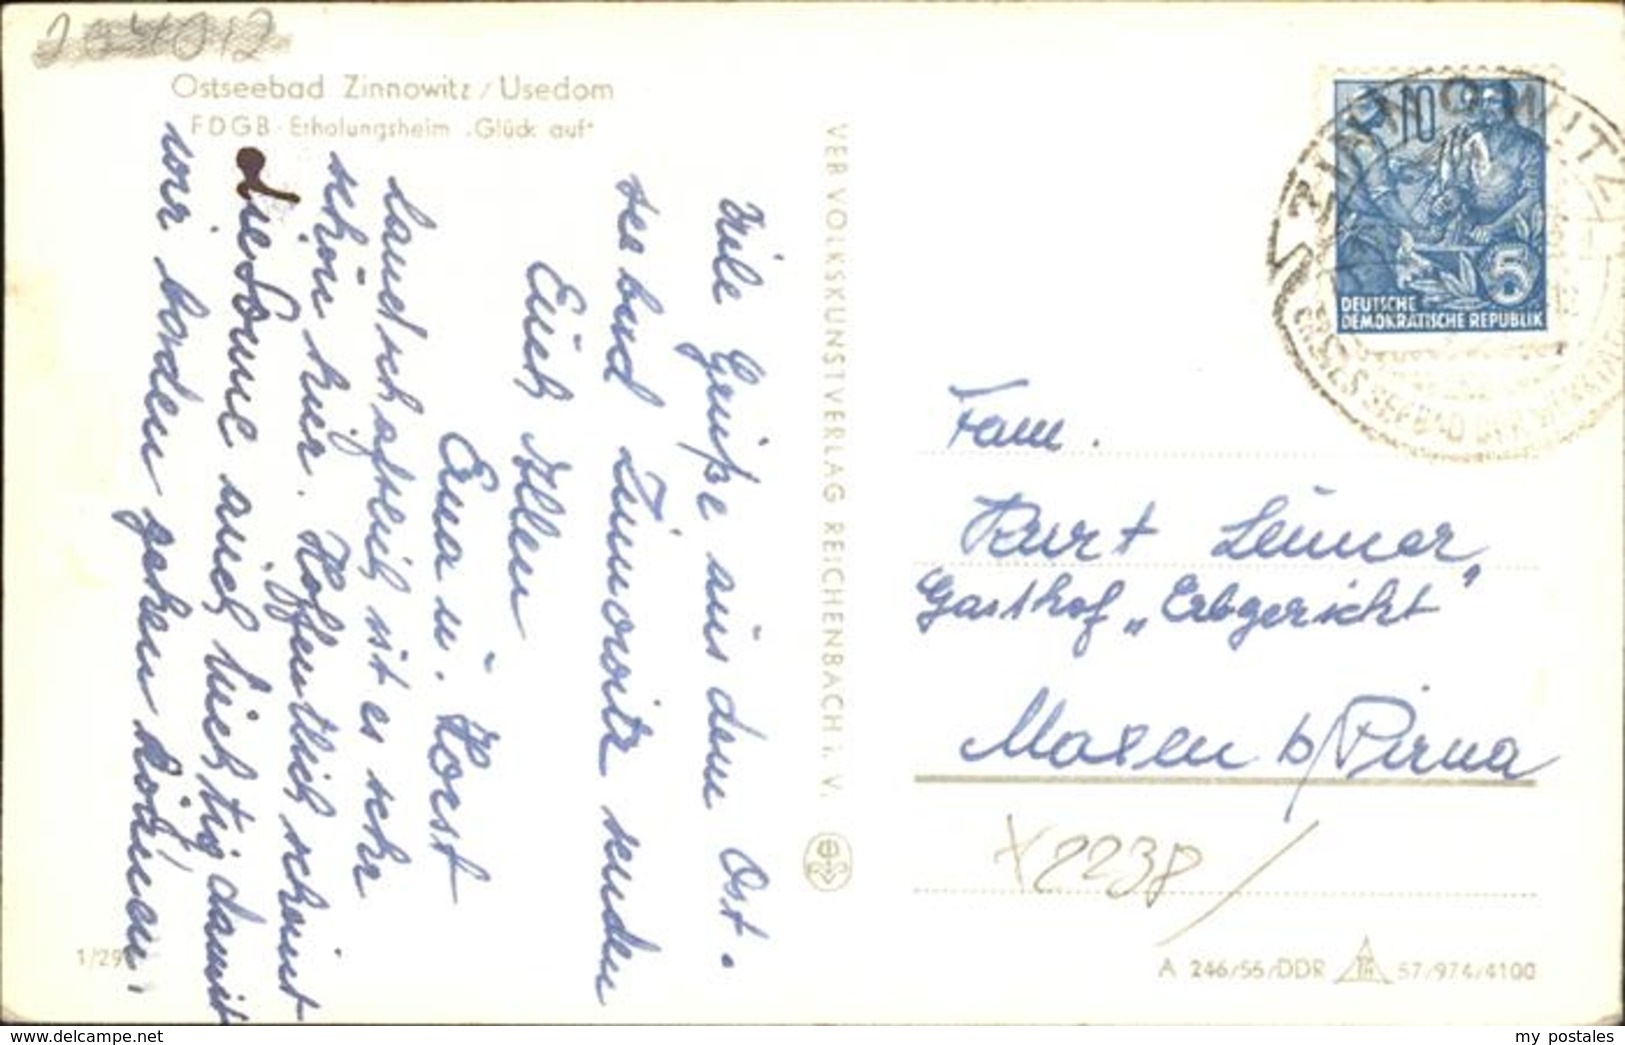 Ostseebad Zinnowitz / Usedom
FDGB-Erholungsheim „Glück auf"
Viele Grüße aus dem Ost-
seebad Zinnowitz senden
Euch Allen
Erna u. Horst
Landschaftlich ist es sehr
schön hier. Hoffentlich scheint
die Sonne auch tüchtig damit
wir baden gehen können.
1/29
VER VOLKSKUNSTVERLAG REICHENBACH i. V.
10
5
DEUTSCHE
DEMOKRATISCHE REPUBLIK
ZINNOWITZ
Fam.
Kurt Leuner
Gasthof „Erbgericht"
Maxen b/Pirna
2238
A 246/56/DDR 57/974/4100
my postales